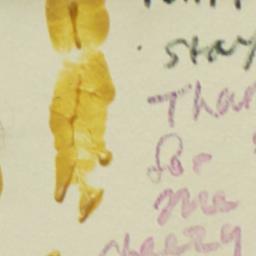 stay
Than
for
me
cheezy